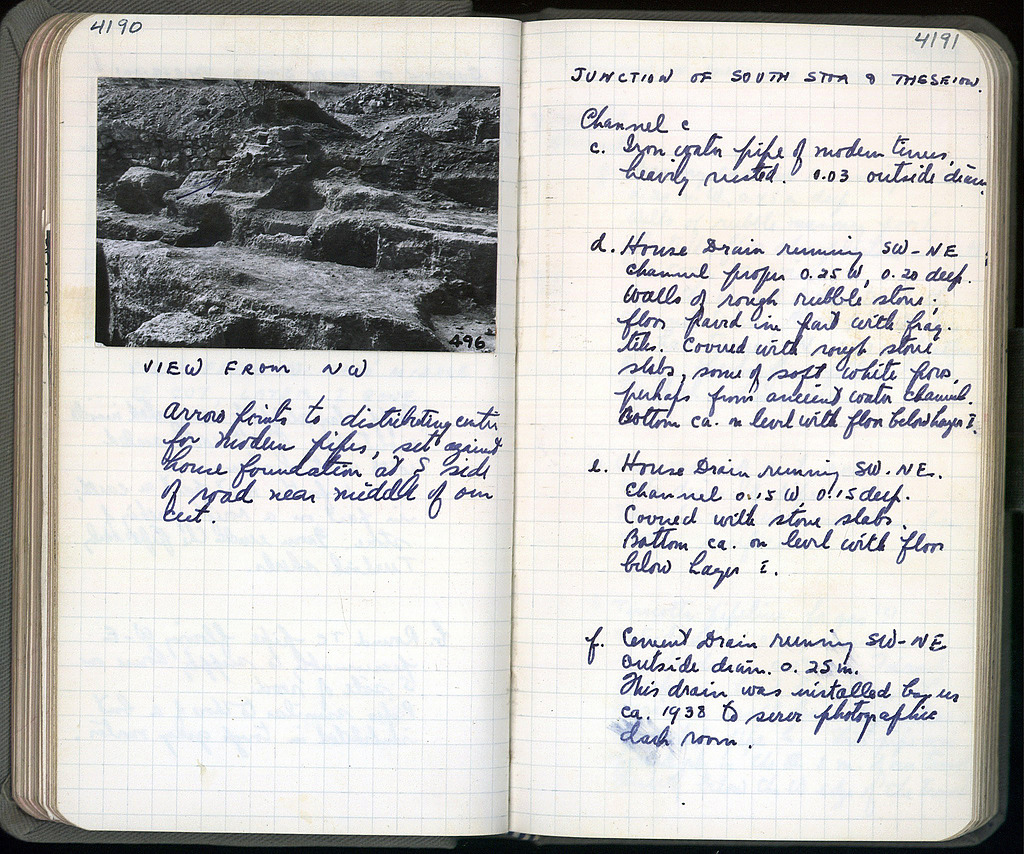 4190
496
VIEW FROM NW
Arrow points to distributing centre
for modern pipes, set against
house foundation at S side
of road near middle of our
cut.
4191
JUNCTION OF SOUTH STOA & THESEION.
Channel c
c. Iron water pipe of modern times,
heavily rusted. 0.03 outside diam.
d. House Drain running SW-NE
channel proper 0.25 W, 0.20 deep.
Walls of rough rubble stone;
floor paved in part with frag.
tiles. Covered with rough stone
slabs, some of soft white poros,
perhaps from ancient water channel.
Bottom ca. on level with floor below Layer I.
e. House Drain running SW-NE.
Channel 0.15 W, 0.15 deep.
Covered with stone slabs.
Bottom ca. on level with floor
below Layer I.
f. Cement Drain running SW-NE
outside diam. 0.25 m.
This drain was installed by us
ca. 1938 to serve photographic
dark room.